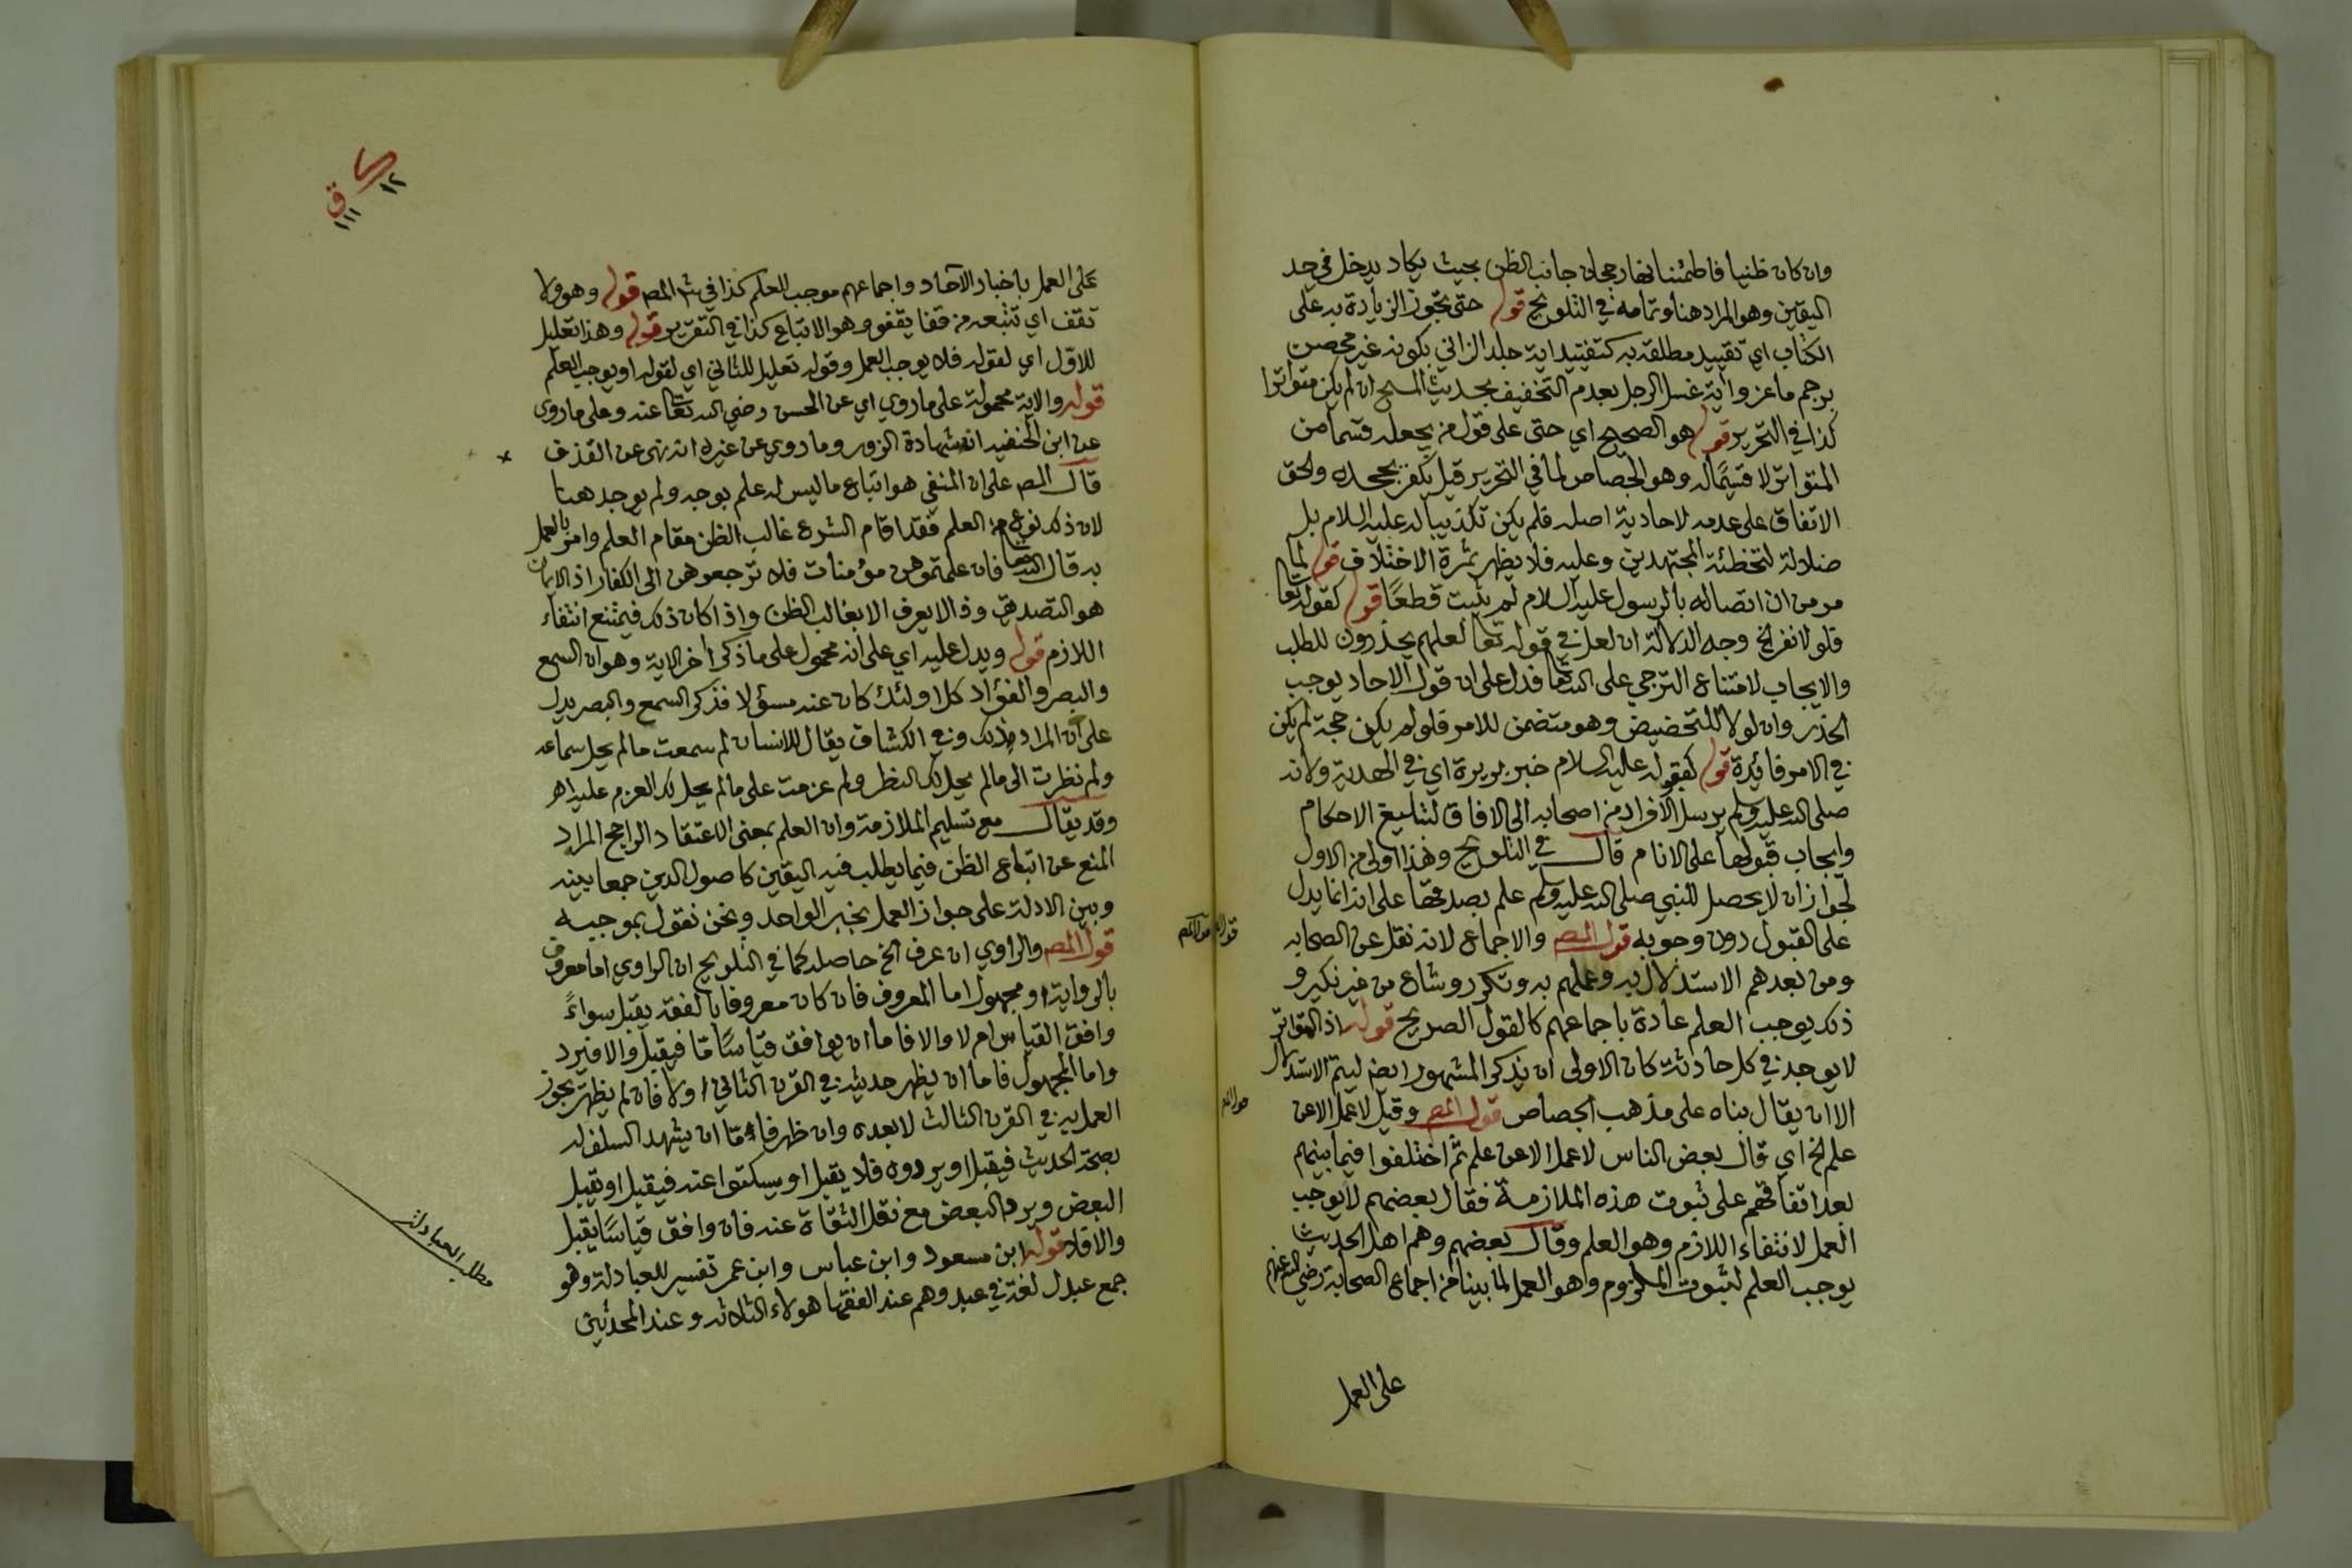 وان كان ظنيا فاطمئنانها رجحان جانب الظن بحيث يكاد يدخل في حد
اليقين وهو المراد هنا وتمامه في التلويح قوله حتى تجوز الزيادة به على
الكتاب اي تقييد مطلقه به كتقييد اية جلد الزاني بكونه غير محصن
برجم ماعز واية غسل الرجل بعدم التخفيف بحديث المسح ان لم يكن متواترا
كذا في التحرير قوله هو الصحيح اي حتى على قول من يجعله قسما من
المتواتر لا قسيمًا له وهو الجصاص لما في التحرير قيل يكفر بجحده والحق
الاتفاق على عدمه لاحادية اصله فلم يكن تكذيبا له عليه السلام بل
ضلالة لتخطئة المجتهدين وعليه فلا يظهر ثمرة الاختلاف قوله لما
مر من ان اتصاله بالرسول عليه السلام لم يثبت قطعًا قوله كقوله تعا
فلولا نفر الخ وجه الدلالة ان لعل في قوله تعا لعلهم يحذرون للطلب
والايجاب لامتناع الترجي على الله تعا فدل على ان قول الاحاد يوجب
الحذر وان لولا للتحضيض وهو متضمن للامر فلو لم يكن حجة لم يكن
في الامر فائدة قوله كقوله عليه السلام خبر بريرة اي في الهدية ولانه
صلى الله عليه وسلم يرسل الافراد من اصحابه الى الافاق لتبليغ الاحكام
وايجاب قبولها على الانام قال في التلويح وهذا اولى من الاول
لجواز ان لا يحصل للنبي صلى الله عليه وسلم علم بصدقها على انه انما يدل
على القبول دون وجوبه قول المص والاجماع لانه نقل عن الصحابه
ومن بعدهم الاستدلال به وعملهم به وتكرر وشاع من غير نكير و
ذلك يوجب العلم عادة باجماعهم كالقول الصريح قوله اذ المتواتر
لا يوجد في كل حادثة كان الاولى ان يذكر المشهور ايضا ليتم الاستدلال
الا ان يقال بناه على مذهب الجصاص قول المص وقيل لا عمل الا عن
علم الخ اي قال بعض الناس لا عمل الا عن علم ثم اختلفوا فيما بينهم
بعد اتفاقهم على ثبوت هذه الملازمة فقال بعضهم لا يوجب
العمل لانتفاء اللازم وهو العلم وقال بعضهم وهم اهل الحديث
يوجب العلم لثبوت الملزوم وهو العمل لما بينا من اجماع الصحابة رضي الله عنهم
على العمل
على العمل باخبار الآحاد واجماعهم موجب للعلم كذا في ش المص قوله وهو ولا
تقف اي تتبعه من قفا يقفو وهو الاتباع كذا في التقرير قوله وهذا تعليل
للاول اي لقوله فلا يوجب العمل وقوله تعليل للثاني اي لقوله او يوجب العلم
قوله والاية محمولة على ما روي اي عن الحسن رضي الله تعا عنه وعلى ما روى
عن ابن الحنفيه انه شهادة الزور وما روي عن غيره انه نهى عن القذف
قال المص على ان المنفي هو اتباع ما ليس له علم بوجه ولم يوجد هنا
لان ذلك نوع من العلم فقد اقام الشرع غالب الظن مقام العلم وامر بالعمل
به قال الله تعا فان علمتموهن مؤمنات فلا ترجعوهن الى الكفار اذ الايمان
هو التصديق وذا لا يعرف الا بغالب الظن واذا كان ذلك فيمتنع انتفاء
اللازم قوله ويدل عليه اي على انه محمول على ما ذكر اخر الاية وهو ان السمع
والبصر والفؤاد كل اولئك كان عنه مسؤلا فذكر السمع والبصر يدل
على ان المراد ذلك وفي الكشاف يقال للانسان لم سمعت ما لم يحل سماعه
ولم نظرت الى ما لم يحل لك النظر ولم عزمت على ما لم يحل لك العزم عليه اهـ
وقد يقال مع تسليم الملازمة وان العلم بمعنى الاعتقاد الراجح المراد
المنع عن اتباع الظن فيما يطلب فيه اليقين كاصول الدين جمعا بينه
وبين الادلة على جواز العمل بخبر الواحد ونحن نقول بموجبه
قول المص والراوي ان عرف الخ حاصله كما في التلويح ان الراوي اما معروف
بالرواية او مجهول اما المعروف فان كان معروفا بالفقه يقبل سواءً
وافق القياس ام لا والا فاما ان يوافق قياسًا ما فيقبل والا فيرد
واما المجهول فاما ان يظهر حديثه في القرن الثاني او لا فان لم يظهر يجوز
العمل به في القرن الثالث لا بعده وان ظهر فاما ان يشهد السلف له
بصحة الحديث فيقبل او يردون فلا يقبل او يسكتوا عنه فيقبل او يقبل
البعض ويرد البعض مع نقل الثقاة عنه فان وافق قياسًا يقبل
والا فلا قوله ابن مسعود وابن عباس وابن عمر تفسير للعبادلة وهو
جمع عبدل لغة في عبد وهم عند الفقها هولاء الثلاثه وعند المحدثين
مطلب العبادلة